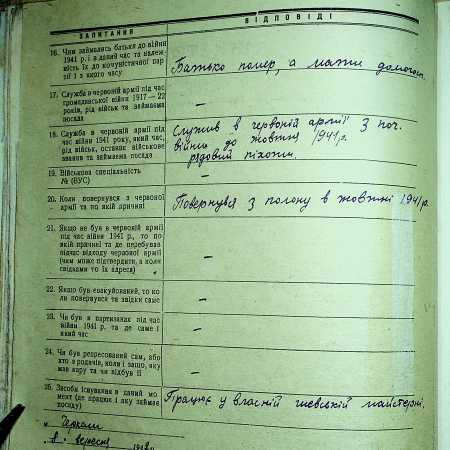 ЗАПИТАННЯ
ВІДПОВІДІ
16. Чим займались батьки до війни
1941 р. і в даний час та належ-
ність їх до комуністичної пар-
тії і з якого часу
Батько помер, а мати домогосп.
17. Служба в червоній армії під час
громадянської війни 1917—22
років, рід військ та займаєма
посада
—
18. Служба в червоній армії під
час війни 1941 року, який час,
рід військ, останнє військове
звання та займаєма посада
Служив в червоній армії з поч.
війни до жовтня 1941 р.
рядовий піхоти.
19. Військова спеціальність
№ (ВУС)
—
20. Коли повернувся з червоної
армії та по якій причині
Повернувся з полону в жовтні 1941 р.
21. Якщо не був в червоній армії
під час війни 1941 р., то по
якій причині та де перебував
підчас відходу червоної армії
(чим може підтвердити, а коли
свідками то їх адреса)
—
22. Якщо був евакуйований, то ко-
ли повернувся та звідки саме
—
23. Чи був в партизанах під час
війни 1941 р. та де саме і
який час
—
24. Чи був репресований сам, або
хто з родичів, коли і защо, яку
мав кару та чи відбув її
—
25. Засоби існування в даний мо-
мент (де працює і яку займає
посаду)
Працює у власній шевській майстерні.
м. Черкаси
вересня 194